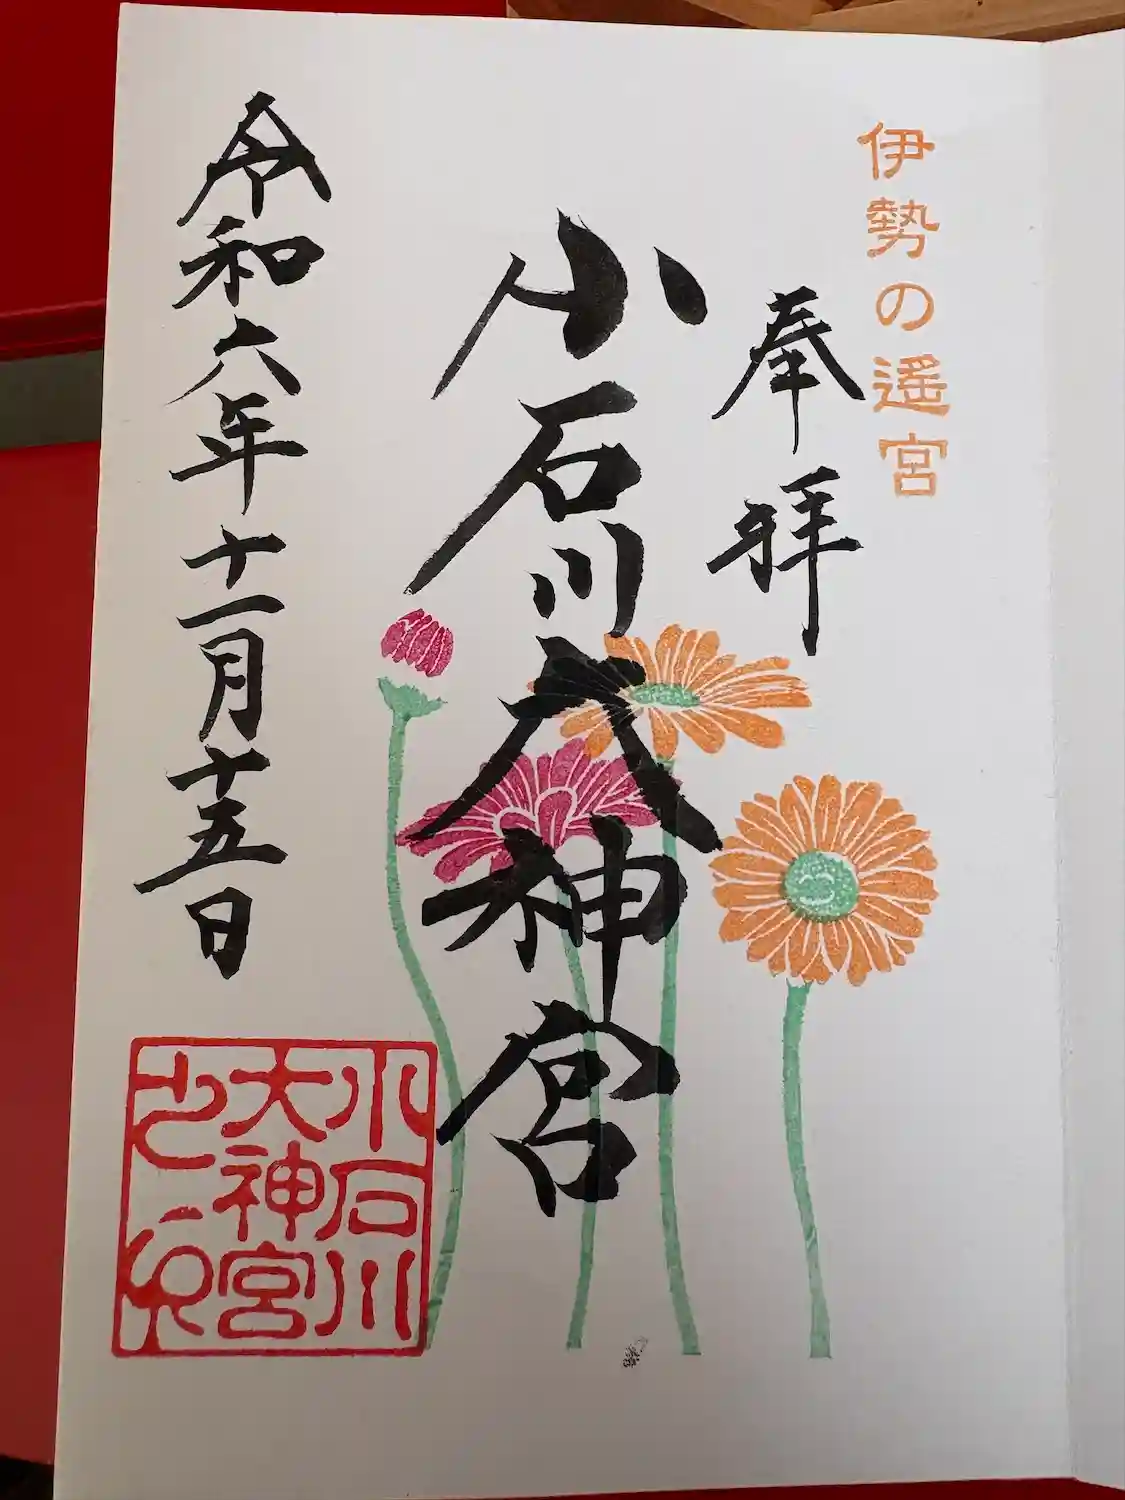 伊勢の遥宮
奉拝
小石川大神宮
令和六年十一月十五日
小石川
大神宮
之印